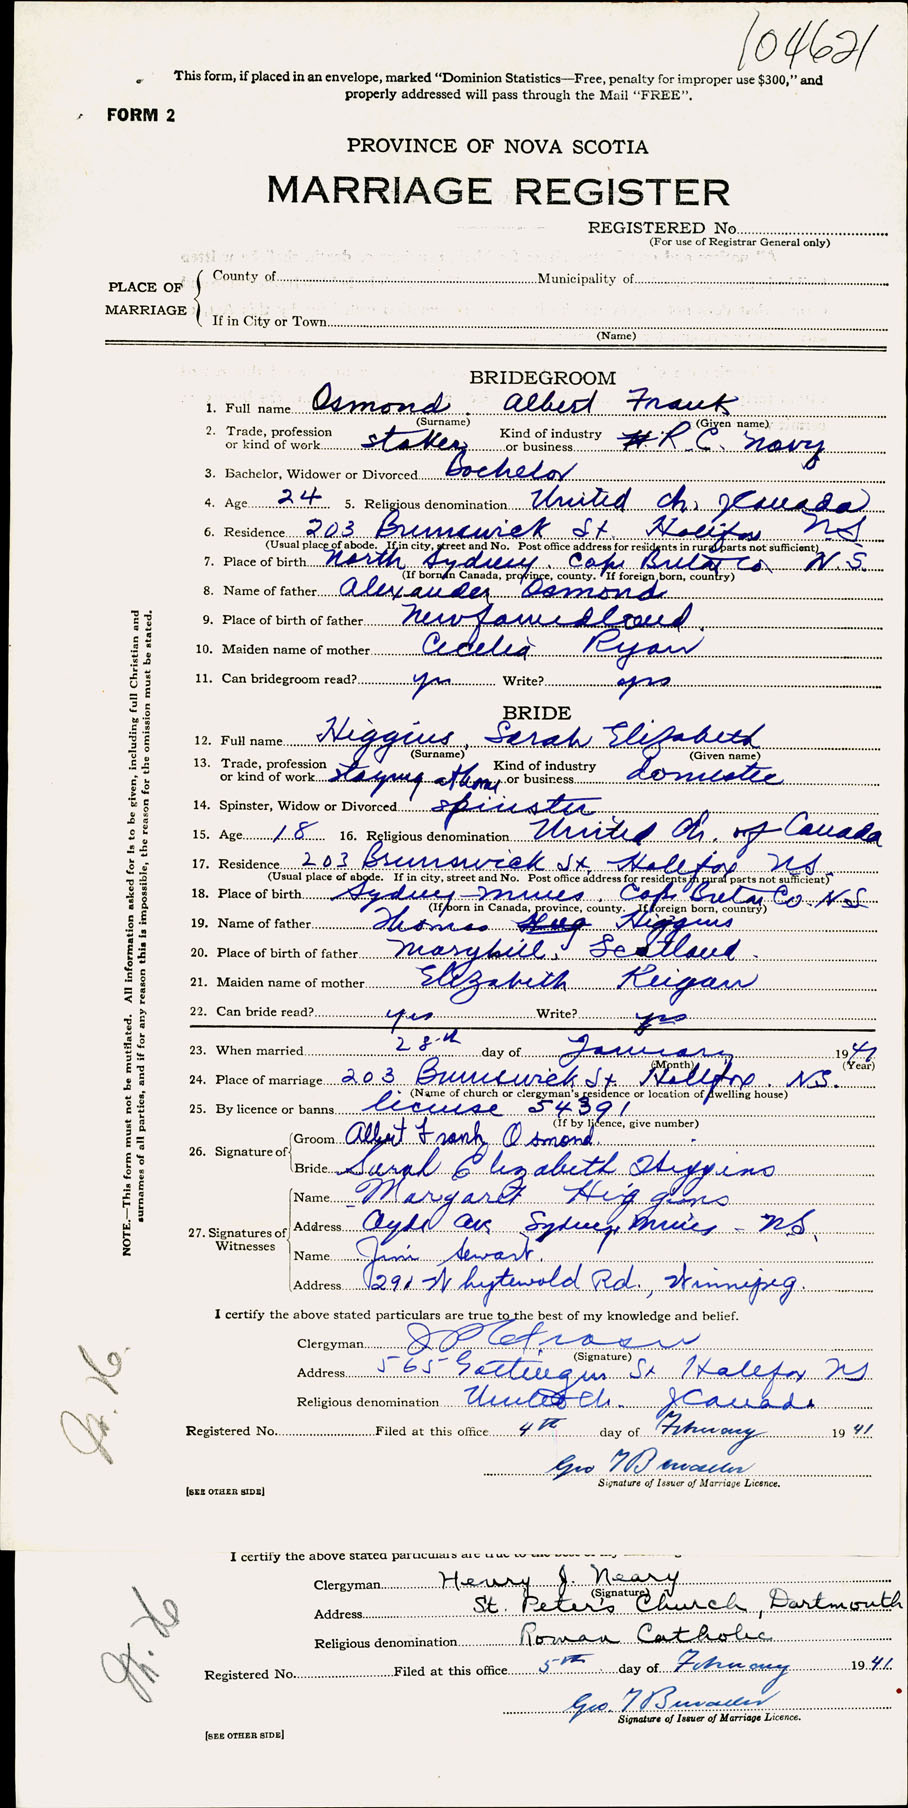 104621
This form, if placed in an envelope, marked "Dominion Statistics—Free, penalty for improper use $300," and
properly addressed will pass through the Mail "FREE".
FORM 2
PROVINCE OF NOVA SCOTIA
MARRIAGE REGISTER
REGISTERED No.
(For use of Registrar General only)
PLACE OF MARRIAGE
County of Municipality of
If in City or Town
(Name)
BRIDEGROOM
1. Full name Osmond, Albert Frank
(Surname) (Given name)
2. Trade, profession or kind of work stoker Kind of industry or business R.C. Navy
3. Bachelor, Widower or Divorced Bachelor
4. Age 24 5. Religious denomination United Ch. of Canada
6. Residence 203 Brunswick St. Halifax NS
(Usual place of abode. If in city, street and No. Post office address for residents in rural parts not sufficient)
7. Place of birth North Sydney, Cape Breton Co. N.S.
(If born in Canada, province, county. If foreign born, country)
8. Name of father Alexander Osmond
9. Place of birth of father Newfoundland
10. Maiden name of mother Cecelia Ryan
11. Can bridegroom read? yes Write? yes
BRIDE
12. Full name Higgins, Sarah Elizabeth
(Surname) (Given name)
13. Trade, profession or kind of work staying at home Kind of industry or business domestic
14. Spinster, Widow or Divorced spinster
15. Age 18 16. Religious denomination United Ch. of Canada
17. Residence 203 Brunswick St. Halifax NS.
(Usual place of abode. If in city, street and No. Post office address for residents in rural parts not sufficient)
18. Place of birth Sydney Mines, Cape Breton Co. N.S
(If born in Canada, province, county. If foreign born, country)
19. Name of father Thomas Higgins
20. Place of birth of father Maryhill, Scotland.
21. Maiden name of mother Elizabeth Keigan
22. Can bride read? yes Write? yes
23. When married 28th day of January 1941
(Month) (Year)
24. Place of marriage 203 Brunswick St Halifax. NS.
(Name of church or clergyman's residence or location of dwelling house)
25. By licence or banns license 54391
(If by licence, give number)
26. Signature of Groom Albert Frank Osmond
Bride Sarah Elizabeth Higgins
27. Signatures of Witnesses Name Margaret Higgins
Address Clyde Ave, Sydney Mines - NS.
Name Jim Stewart.
Address 291 Whytewold Rd., Winnipeg.
I certify the above stated particulars are true to the best of my knowledge and belief.
Clergyman
(Signature)
Address 565 Gottingen St Halifax NS
Religious denomination United Ch. of Canada
Registered No. Filed at this office 4th day of February 1941
Geo
Signature of Issuer of Marriage Licence.
[SEE OTHER SIDE]
NOTE.—This form must not be mutilated. All information asked for is to be given, including full Christian and
surnames of all parties, and if for any reason this is impossible, the reason for the omission must be stated.
I certify the above stated particulars are true to the best of my
Clergyman Henry J. Neary
(Signature)
Address St. Peter's Church, Dartmouth
Religious denomination Roman Catholic
Registered No. Filed at this office 5th day of February 1941.
Geo.
Signature of Issuer of Marriage Licence.
[SEE OTHER SIDE]